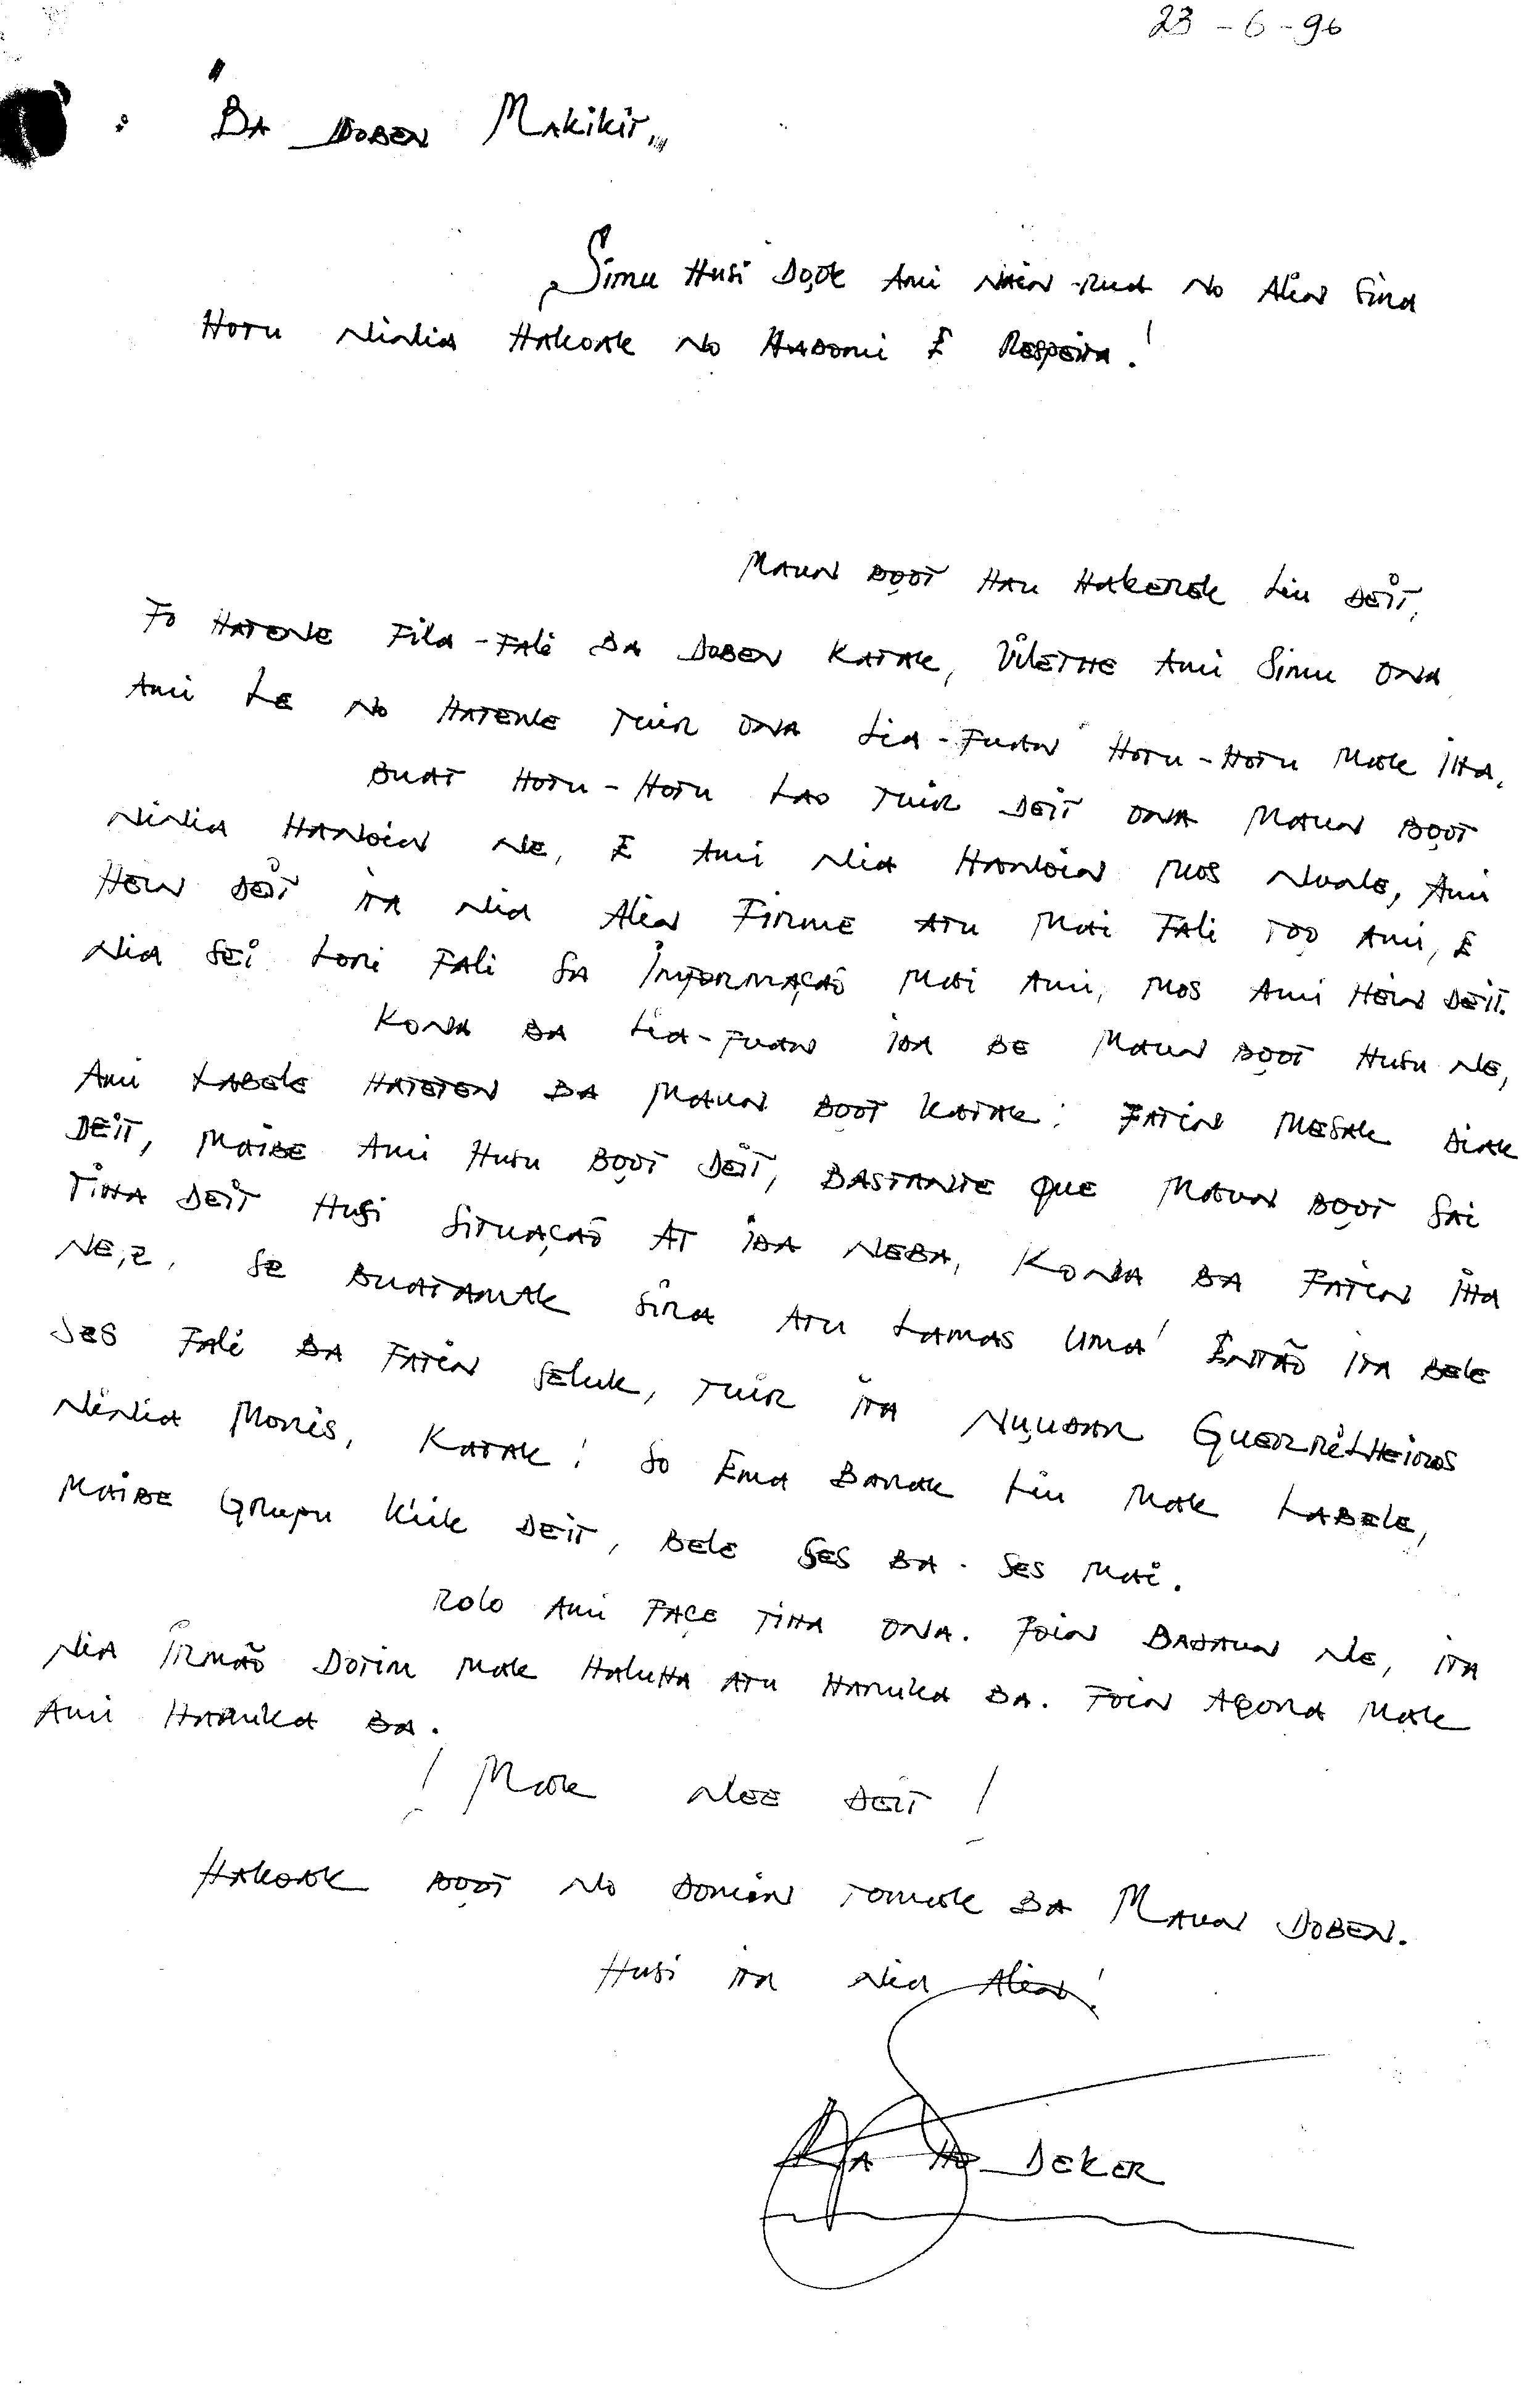 23-6-96
"Ba Doben Makikit,,,
Simu Husi Dook Ami Nain-Rua No Alin Sira
Hotu Ninia Hakoak No Hadomi E Respeita!
Maun Boot Hau Hakerek Liu Deit,
Fo Hatene Fila-Fali Ba Doben Katak, Bilethe Ami Simu Ona
Ami Le No Hatene Tuir Ona Lia-Fuan Hotu-Hotu Mak Iha.
Buat Hotu-Hotu Lao Tuir Deit Ona Maun Boot
Ninia Hanoin Ne, E Ami Nia Hanoin Mos Nune, Ami
Hein Deit Ita Nia Alin Firme Atu Mai Fali Too Ami, E
Nia Sei Lori Fali Sa Informaçaõ Mai Ami, Mos Ami Hein Deit.
Kona Ba Lia-Fuan Ida Be Maun Boot Husu Ne,
Ami Labele Hateten Ba Maun Boot Katak: Fatin Mesak Diak
Deit, Maibe Ami Husu Boot Deit, Bastante Que Maun Boot Sai
Tiha Deit Husi Situaçaõ At Ida Neba, Kona Ba Fatin Iha
Ne,e. Se Buatamak Sira Atu Lamas Uma! Então Ita Bele
Ses Fali Ba Fatin Seluk, Tuir Ita Nuudar Guerrilheiros
Ninia Moris, Katak: So Ema Barak Liu Mak Labele,
Maibe Grupu Kiik Deit, Bele Ses Ba. Ses Mai.
Rolo Ami Face Tiha Ona. Foin Badaun Ne, Ita
Nia Irmão Dotim Mak Haluha Atu Haruka Ba. Foin Agora Mak
Ami Haruka Ba.
! Mak Nee Deit !
Hakoak Boot No Domin Tomak Ba Maun Doben.
Husi Ita Nia Alin!
Deker